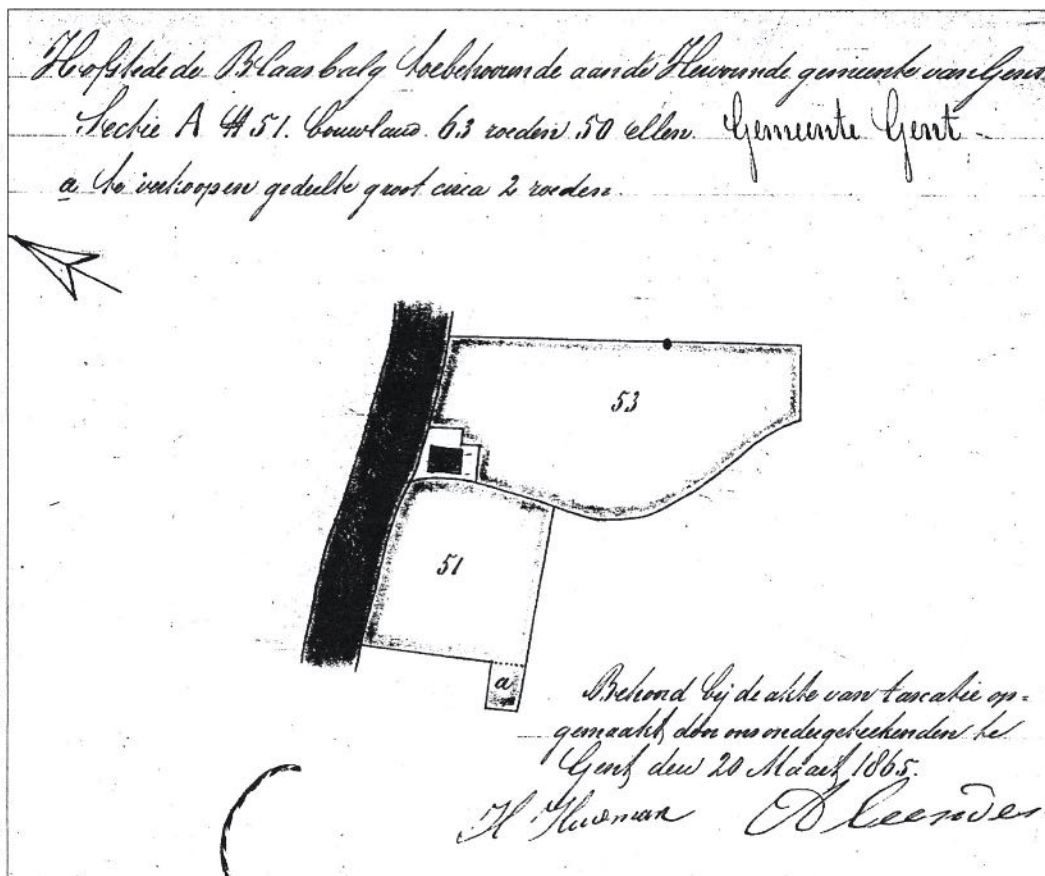 Hofstede de Blaasbalg toebehoorende aan de Hervormde gemeente van Gent.
Sectie A # 51. bouwland. 63 roeden 50 ellen. Gemeente Gent -
a te verkoopen gedeelte groot circa 2 roeden.
53
51
a
Behoord bij de akte van taxatie op=
gemaakt door ons ondergeteekenden te
Gent den 20 Maart 1865.
H